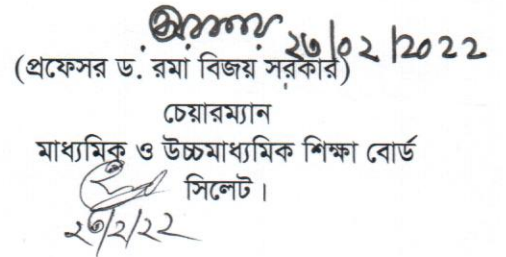 ২৩/০২/২০২২
(প্রফেসর ড. রমা বিজয় সরকার)
চেয়ারম্যান
মাধ্যমিক ও উচ্চমাধ্যমিক শিক্ষা বোর্ড
সিলেট।
২৩/২/২২